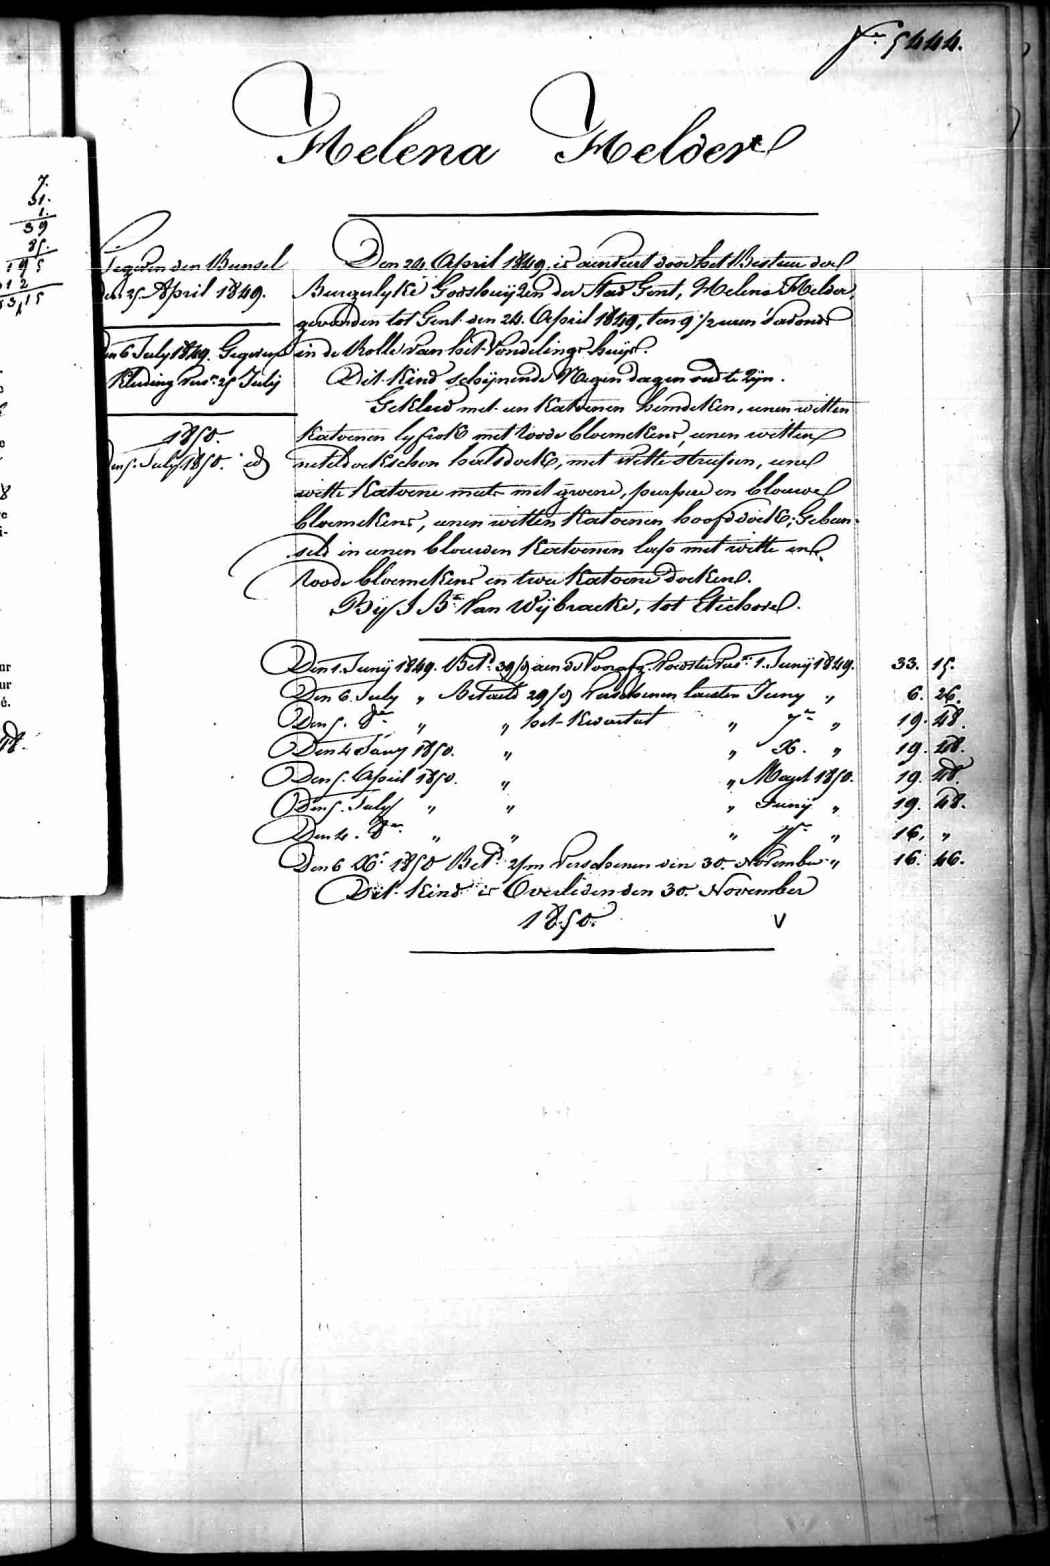 5444.
Helena Helder
7.
31.
1.
39
35.
195
Gegeven den Bunsel
den 25 April 1849.
Den 6 July 1849. Gegeven
Kleding vers. 25 July
1850.
Den 5. July 1850. id
Den 24. April 1849, is aenveird door het Bestuer der
Burgerlyke Godshuyzen der Stad Gent, Helena Helder,
gevonden tot Gent den 24. April 1849, ten 9 1/2 uren s'avonds
in de Rolle van het Vondelings huys.
Dit Kind schijnende Negen dagen oud te zyn.
Gekleed met een Katoenen hemdeken, eenen witten
Katoenen lyfrok met roode bloemekens, eenen witten
neteldoekschen halsdoek, met witte strepen, eene
witte Katoene muts met groene, purpure en blouwe
bloemekens, eenen witten Katoenen hoofddoek; Gebun-
seld in eenen blouwen Katoenen lap met witte en
roode bloemekens en twee Katoene doeken.
By J. Bte Van Wijbracke, tot Eechoo.
Den 1. Juny 1849. Betd 39/d aen de voorsz. Voedster vers. 1. Juny 1849. 33. 15.
Den 6. July „ betaeld 29/d verschenen laesten Juny „ 6. 26.
Den 5. 8er „ „ het Kwartael „ 7er „ 19. 48.
Den 4 Jany 1850. „ „ X. „ 19. 48.
Den 5. April 1850. „ „ Maert 1850. 19. 48.
Den 5. July „ „ „ Juny „ 19. 48.
Den 4. 8er „ „ „ 7er „ 16. „
Den 6 Xbr 1850 Betd 2/m verschenen den 30. November „ 16. 46.
Dit Kind is Overleden den 30. November
1850. V